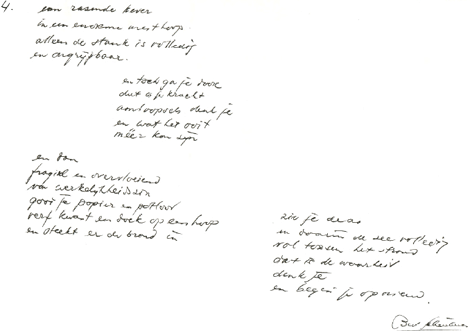 4.
een razende kever
in een enorme mesthoop
alleen de stank is volledig
en ongrijpbaar.
en toch ga je door
dat is je kracht
denk je
en wat het ooit
méér kan zijn
en dan
fragiel en overvloeiend
van werkelijkheidszin
gooi je papier en potlood
verf kwast en doek op een hoop
en steekt er de brand in
zie je de as
en daarin de zee volledig
vol tussen het strand
dat is de waarheid
denk je
en begin je opnieuw.